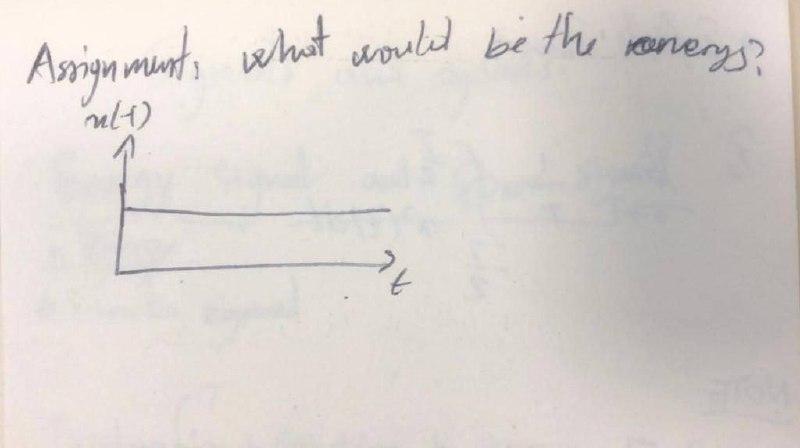 Assignment, what would be the energy?
x(t)
t